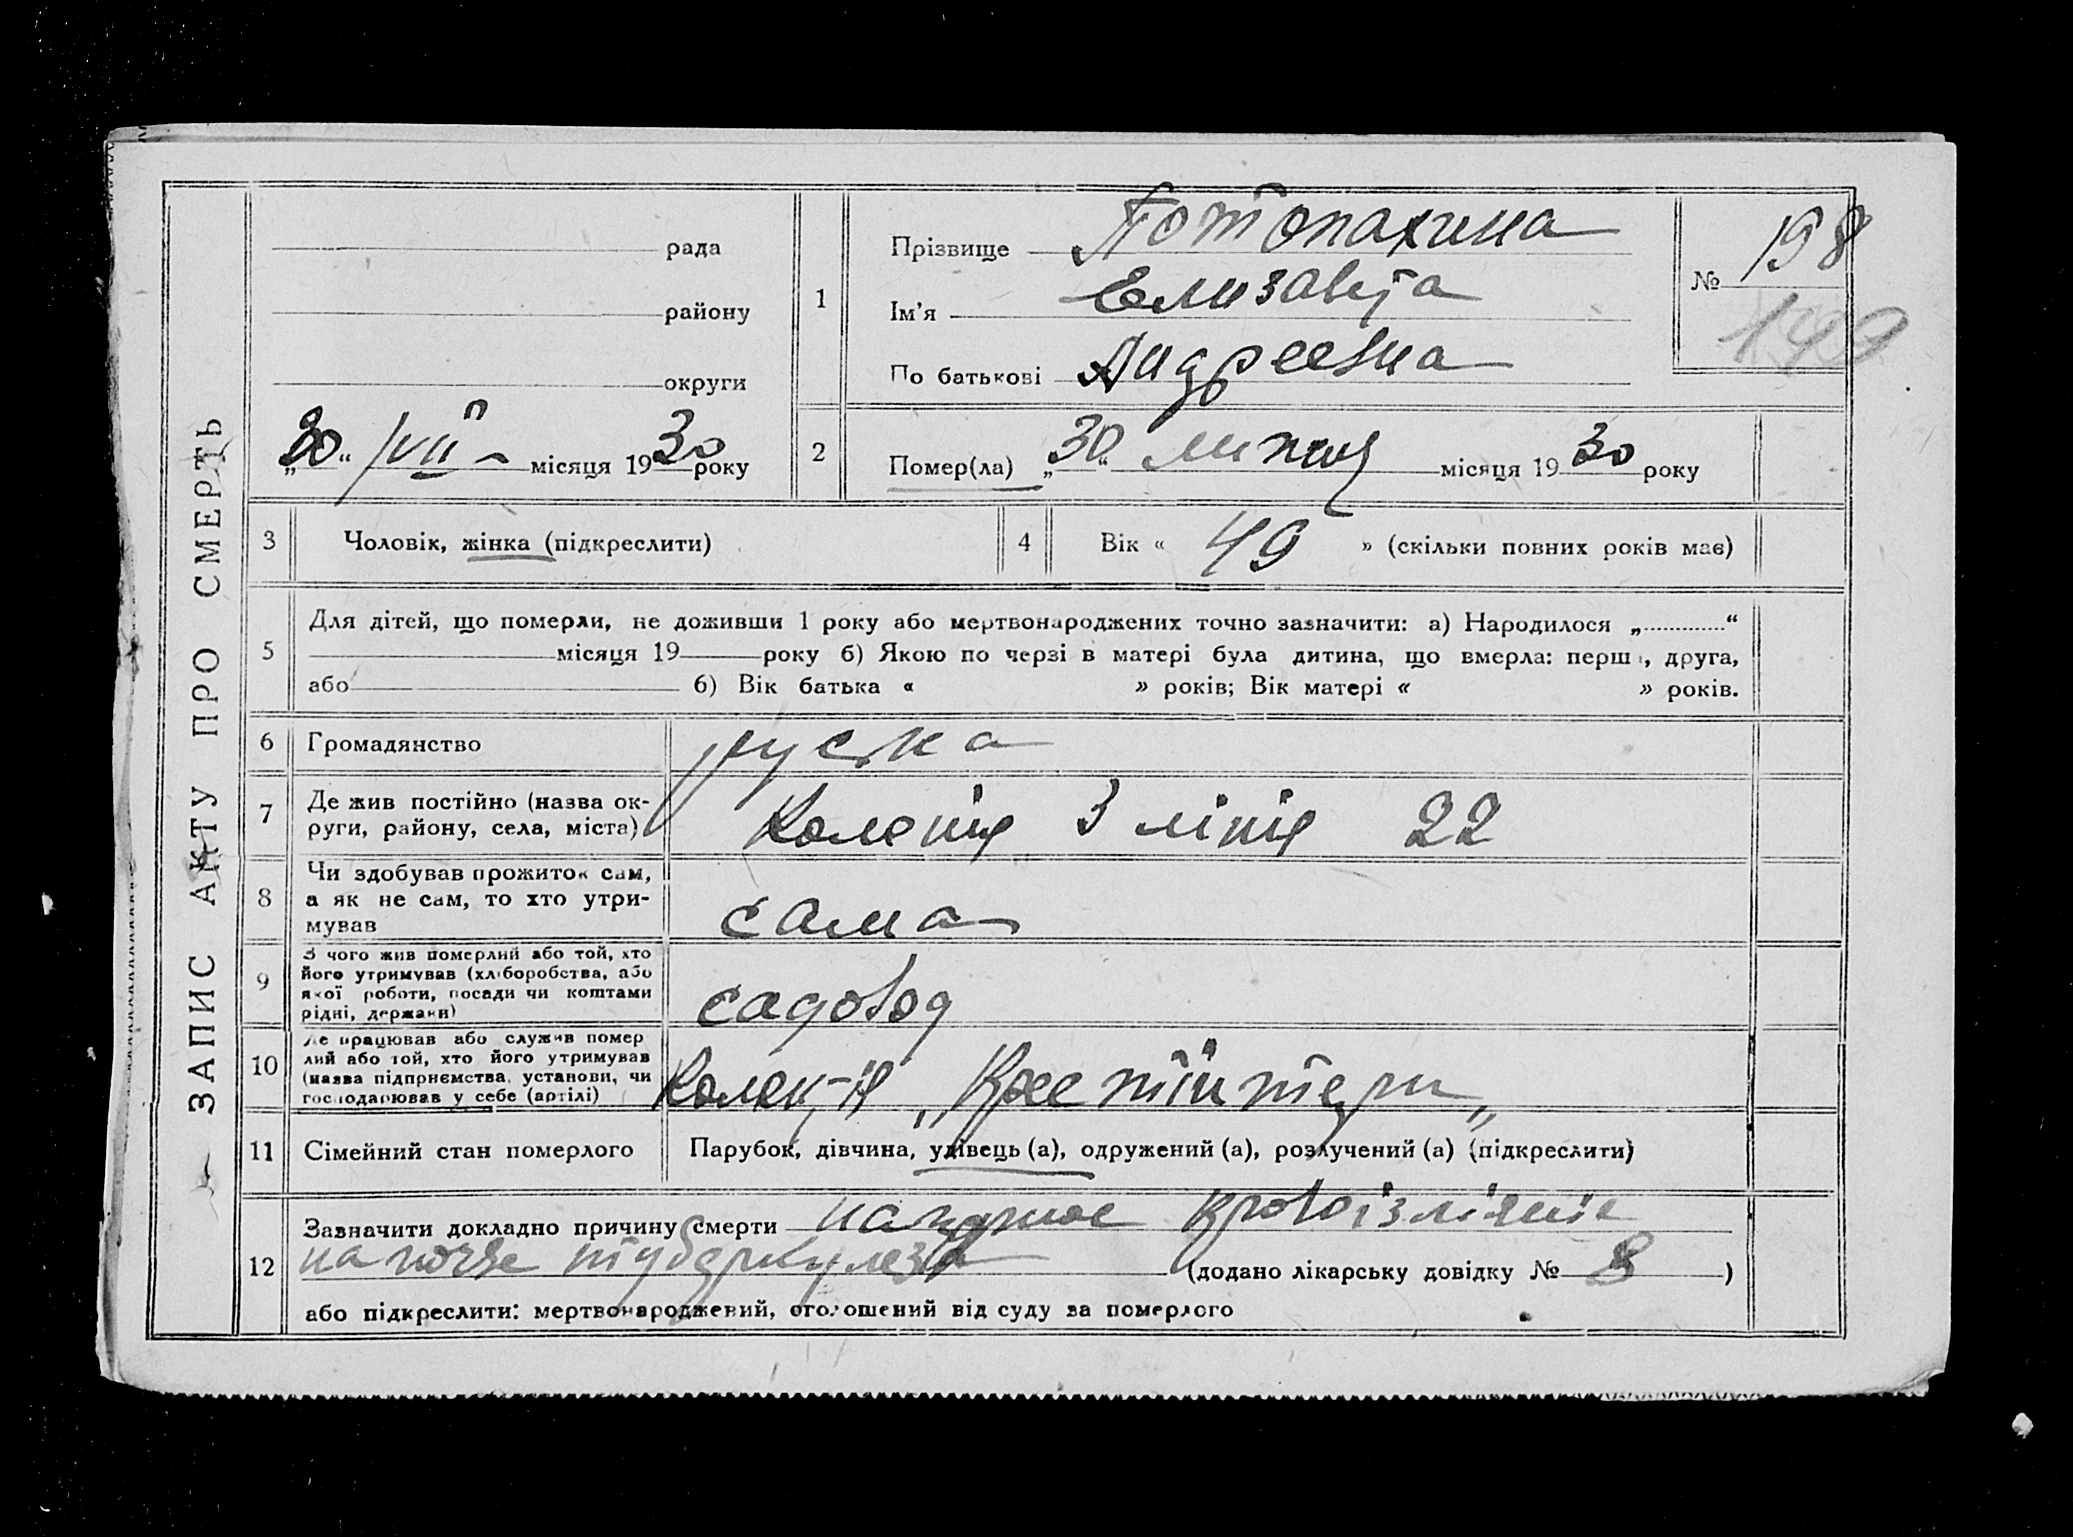 ЗАПИС АКТУ ПРО СМЕРТЬ
рада
району
округи
„30“ VII місяця 1930 року
1
Прізвище Потопахина
Ім'я Елизавета
По батькові Андреевна
№ 198
149
2
Помер(ла) „30“ липня місяця 1930 року
3 Чоловік, жінка (підкреслити)
4 Вік « 49 » (скільки повних років має)
5
Для дітей, що померли, не доживши 1 року або мертвонароджених точно зазначити: а) Народилося „ “
місяця 19 року б) Якою по черзі в матері була дитина, що вмерла: перша, друга,
або б) Вік батька « » років; Вік матері « » років.
6 Громадянство руска
7 Де жив постійно (назва ок-
руги, району, села, міста)
Колонія 3 лінія 22
8
Чи здобував прожиток сам,
а як не сам, то хто утри-
мував
сама
9
З чого жив померлий або той, хто
його утримував (хліборобства, або
якої роботи, посади чи коштами
рідні, держави)
садовод
10
Де працював або служив помер
лий або той, хто його утримував
(назва підприємства, установи, чи
господарював у себе (артілі)
Колек-в „Крестінтерн„
11 Сімейний стан померлого Парубок, дівчина, удівець (а), одружений (а), розлучений (а) (підкреслити)
12
Зазначити докладно причину смерти кровоізліяніе
на почве туберкулеза (додано лікарську довідку № 8 )
або підкреслити: мертвонароджений, оголошений від суду за померлого